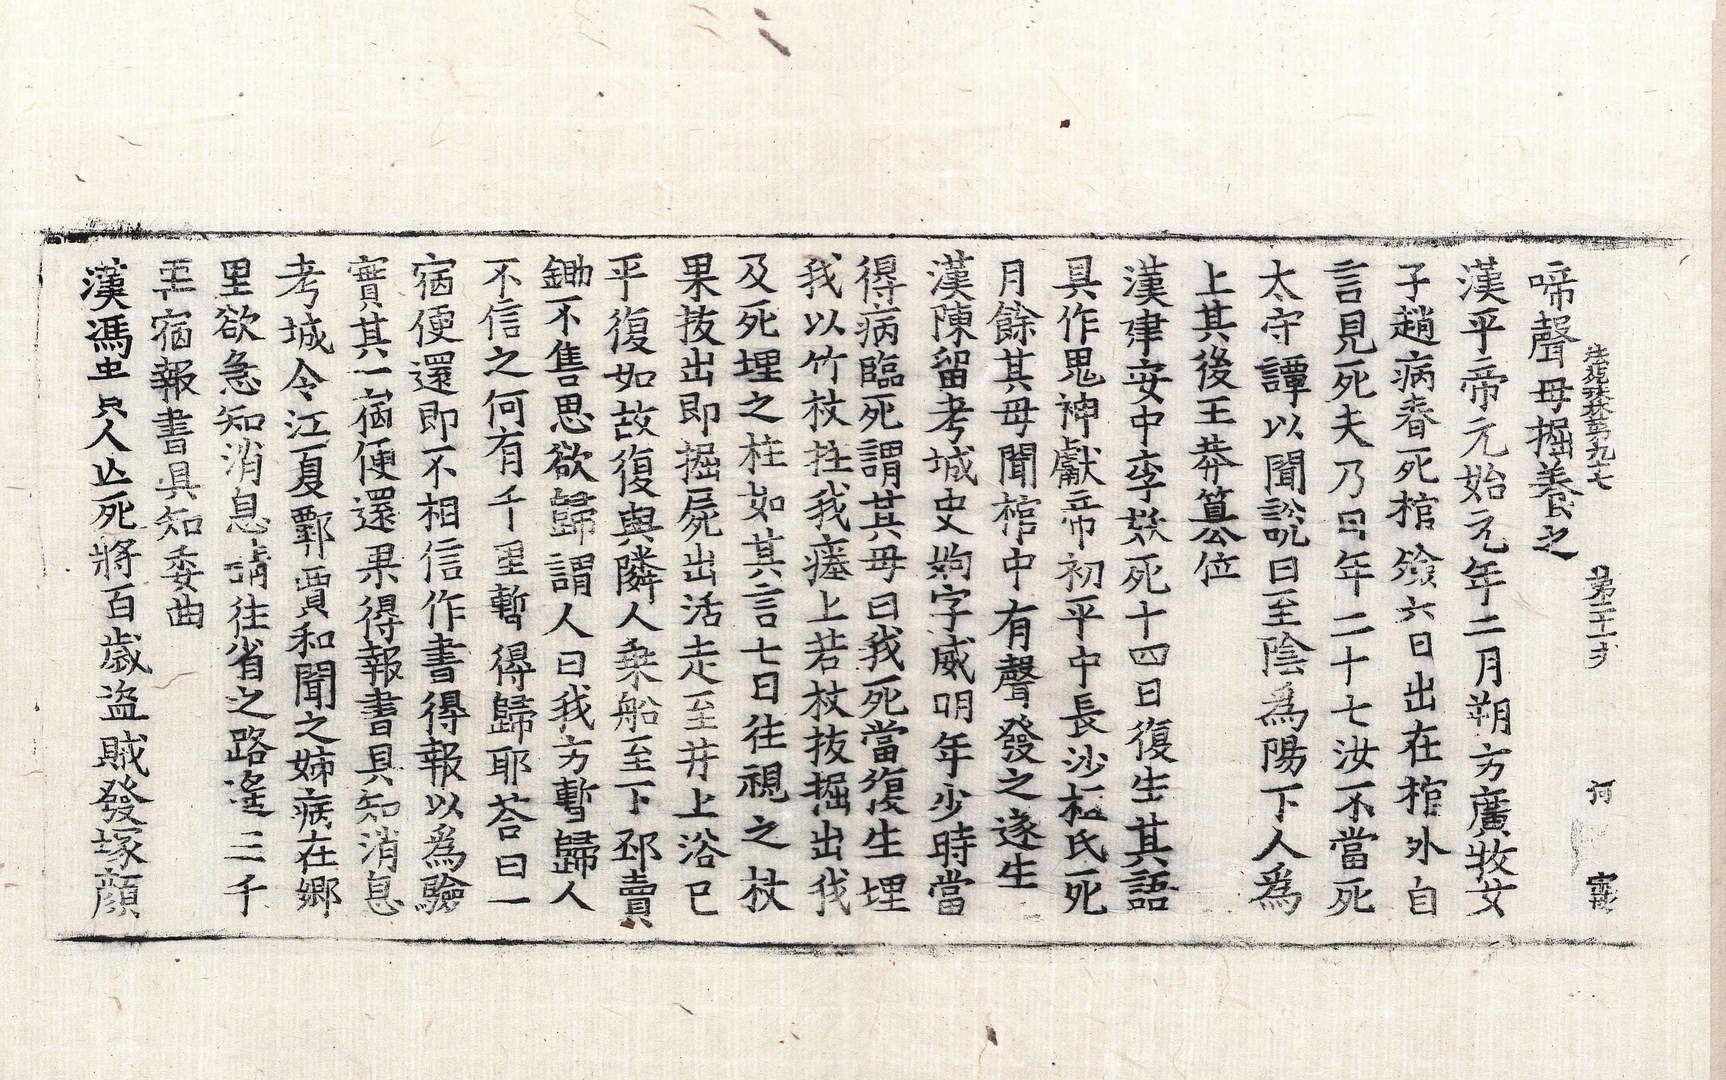 法苑珠林第九十七　第二十一方　河　寧
啼聲母掘養之
漢平帝元始元年二月朔方廣牧女
子趙病春死棺殮六日出在棺外自
言見死夫乃曰年二十七汝不當死
太守譚以聞訟說曰至陰爲陽下人爲
上其後王莽篡公位
漢建安中李娥死十四日復生其語
具作鬼神獻帝初平中長沙桓氏死
月餘其母聞棺中有聲發之遂生
漢陳留考城史姁字威明年少時當
得病臨死謂其母曰我死當復生埋
我以竹杖拄我瘞上若杖拔掘出我
及死埋之柱如其言七日往視之杖
果拔出即掘屍出活走至井上浴已
平復如故復與隣人乘船至下邳賣
鋤不售思欲歸謂人曰我方暫歸人
不信之何有千里暫得歸耶荅曰一
宿便還即不相信作書得報以爲驗
實其一宿便還果得報書具知消息
考城令江夏鄳賈和聞之姊病在鄉
里欲急知消息請往省之路遙三千
里宿報書具知委曲
漢馮貴人亡死將百歲盜賊發塚顏